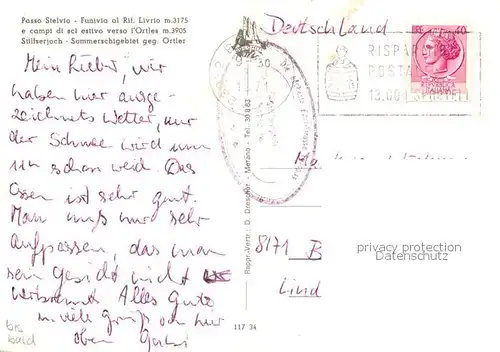 Passo Stelvio - Funivia al Rif. Livrio m.3175
e campi di sci estivo verso l'Ortles m.3905
Stilfserjoch - Sommerschigebiet geg. Ortler
Deutschland
40
RISPAR
POSTA
13.001
REPUBBLICA
ITALIANA
Mein Lieber, wir
haben hier ausge-
zeichnets Wetter, nur
der Schnee wird um
11h schon weich. Das
Essen ist sehr gut.
Man muß nur sehr
aufpassen, das man
sein Gesicht nicht
verbrennt Alles Gute
u. viele Grüße von hier
oben
bis
bald
Rappr.-Vertr.: D. Drescher - Merano - Tel. 30 8 63
117 34
8171 B
Lind
privacy protection
Datenschutz